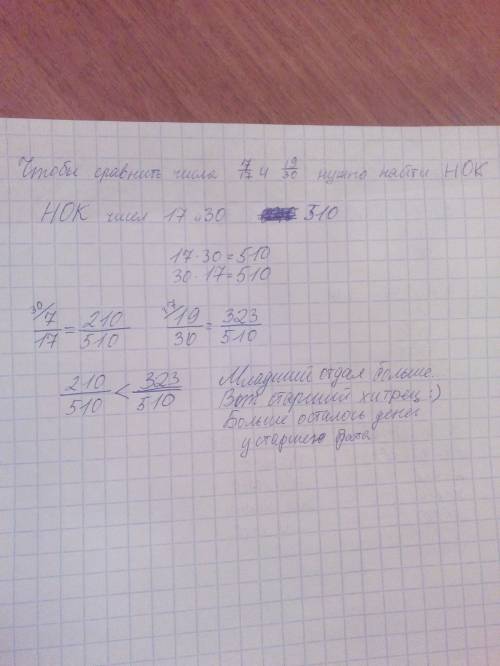 Чтобы сравнить числа 7/17 и 19/30 нужно найти НОК
НОК чисел 17 и 30 510
17·30=510
30·17=510
30/ 7/17 = 210/510 17/ 19/30 = 323/510
210/510 < 323/510
Младший отдал больше.
Вот старший хитрец :)
Больше осталось денег
у старшего брата